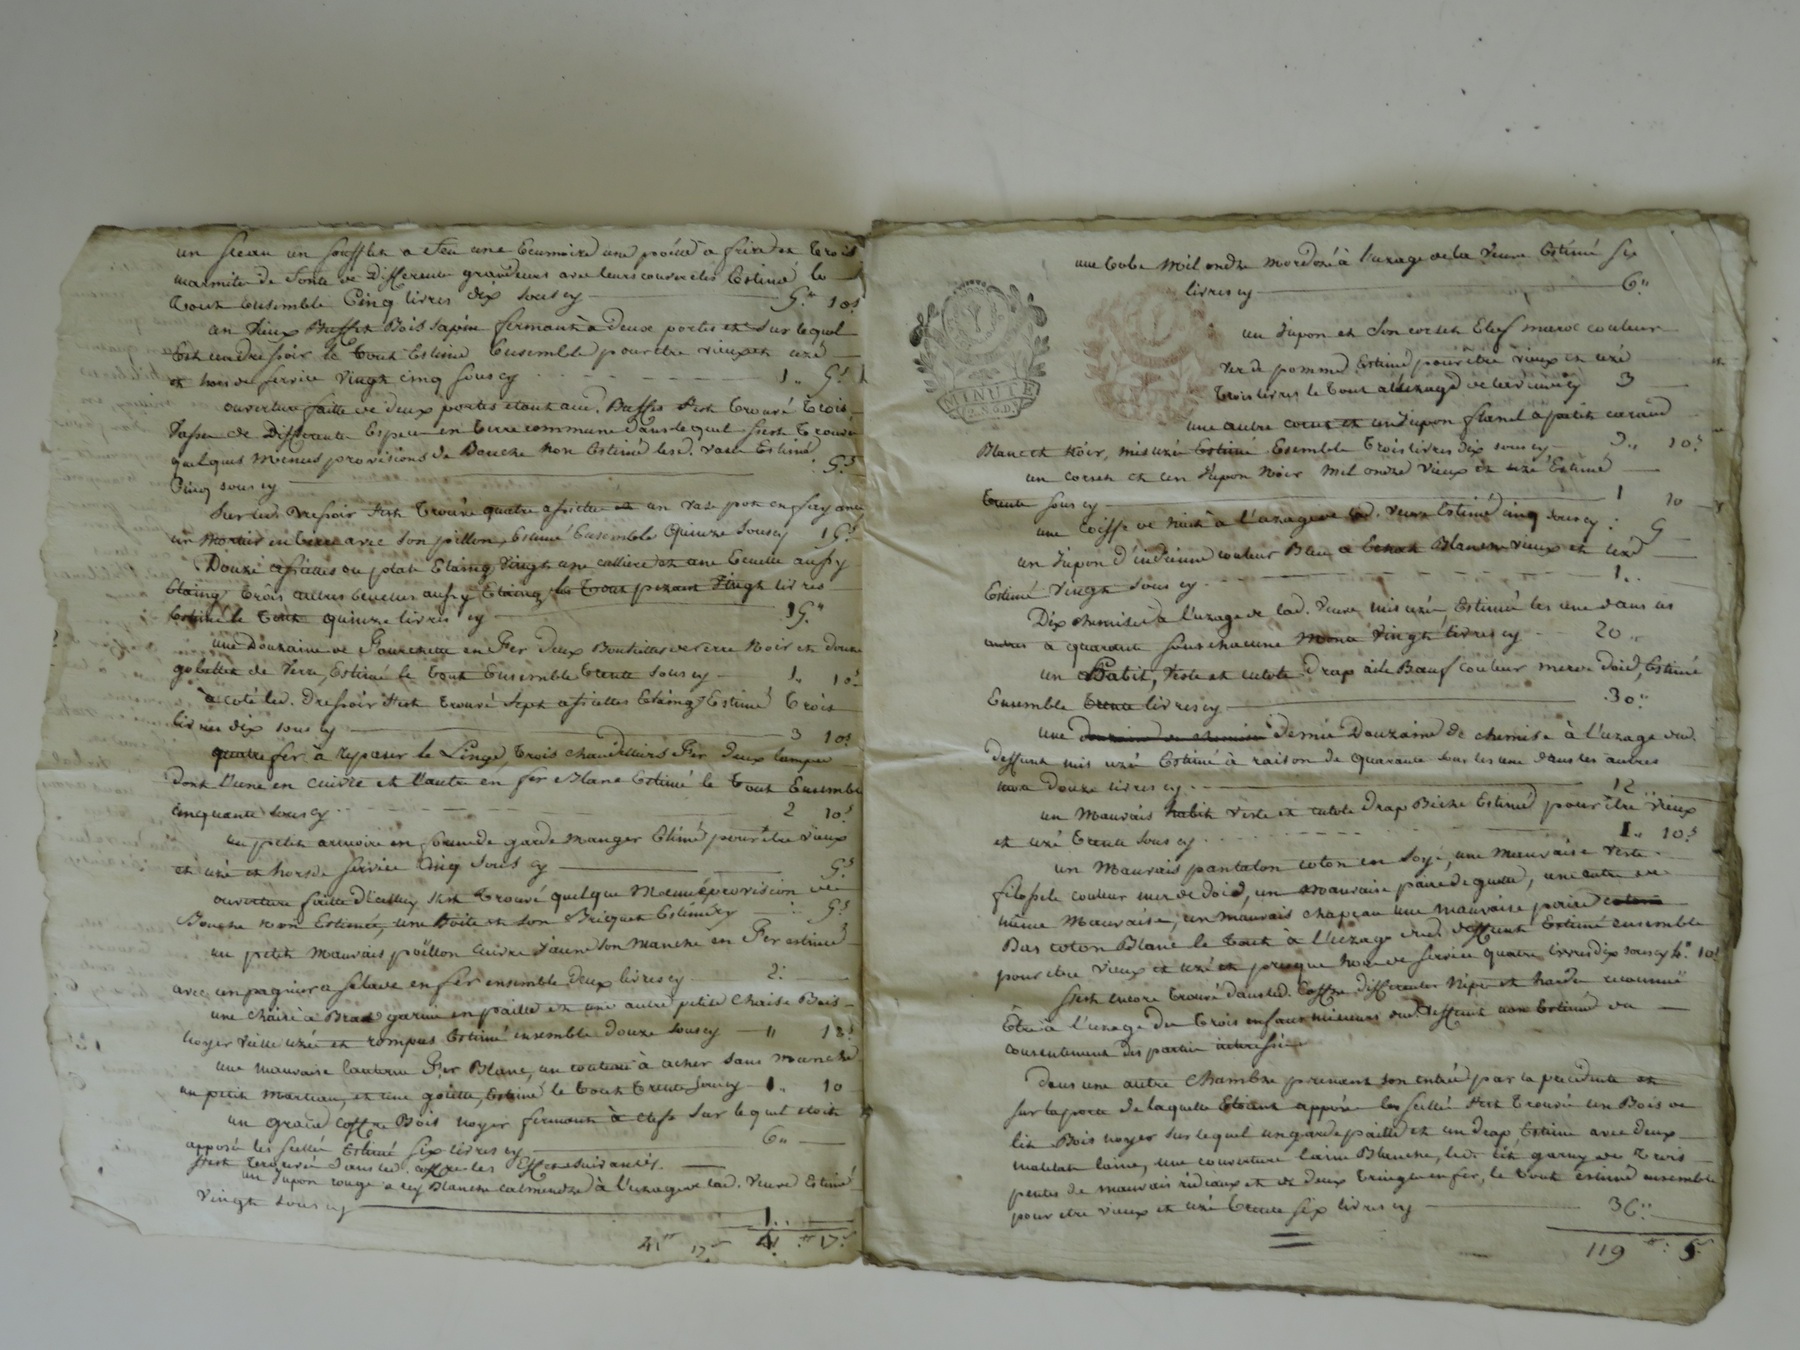 un sceau un soufflet a feu une Ecumoire une poële a frire et trois
marmites de fonte de Differente grandeurs avec leurs couvercles Estimé le
Tout Ensemble Cinq livres dix sous cy 5.tt 10s
un vieux Buffet Bois sapin fermant à deux portes et sur lequel
Est un dressoir le tout Estimé Ensemble pour être vieux et uzé
et hors de service vingt cinq sous cy 1.. 5s
ouverture faitte de deux portes étant aud. Buffet s'est trouvé trois
tasses de Differente Espece en terre commune dans lequel s'est trouvé
quelques Menues provisions de Bouche Non Estimé lesd. Estimé
Cinq sous cy 5s
sur led. dressoir s'est trouvé quatre assiettes et un pot en fayance
un Mortier en terre avec son pillon, Estimé Ensemble Quinze sous cy 15s
Douze assiettes ou plats Etaing, vingt une cuillere et une Ecuelle aussy
Etaing, trois autres Ecuelles aussy Etaing le tout pezant vingt livres
Estimé le tout quinze livres cy 15.tt
une Douzaine de Fourchette en Fer deux Bouteilles verre Noir et douze
gobellets de Verre, Estimé le tout Ensemble trente sous cy 1.. 10s
à coté led. Dressoir s'est trouvé sept assiettes Etaing Estimé trois
livres dix sous cy 3 10s
quatre fer à repasser le Linge, trois chandelliers Fer deux lampes
dont l'une en cuivre et l'autre en fer Blanc Estimé le tout Ensemble
cinquante sous cy 2 10s
un petit armoire en forme de garde manger Estimé pour être vieux
et uzé et hors de service cinq sous cy 5s
ouverture faitte d'icelluy s'est trouvé quelque Menue provision de
Bouche non Estimée, une Boite et son Briquet Estimé cy 5s
un petit mauvais poëllon cuivre jaune son manche en Fer estimé
avec un pagnier a salade en fer ensemble deux livres cy 2.
une chaire à Bras garnie en paille et une autre petite chaise Bois
Noyer vielle uzée et rompus Estimé ensemble douze sous cy " 12s
une mauvaise lanterne Fer Blanc, un couteau à acher sans manche
un petit marteau, et une goïette, Estimé le tout trente sous cy 1.. 10
un grand coffre Bois noyer fermant à clef sur lequel etoit
apposé les scellé Estimé six livres cy 6"
s'est trouvé dans led. coffre les Effets suivantes.
un Jupon rouge Blanche calmendre à l'uzage de lad. veuve Estimé
vingt sous cy 1..
41tt 17s 41 tt 17s
une robe Mil ondre mordoré à l'uzage de la veuve Estimé six
livres cy 6"
un Jupon et son corset maroc couleur
ver de pomme Estimé pour être vieux et uzé
trois livres le tout à l'uzage de lad. veuve cy 3
une autre un Jupon flanel à petit careaux
Blanc et Noir, mis uzé Estimé Ensemble trois livres dix sous cy 3.. 10s
un corset et un Jupon Noir Mil ondre vieux et uzé Estimé
trente sous cy 1 10
une coëffe de Nuit à l'uzage de lad. veuve Estimé cinq sous cy 5
un Jupon d'indienne couleur Bleu a Blanche vieux et uzé
Estimé vingt sous cy 1..
Dix chemises à l'uzage de lad. veuve mis uzée Estimé les une dans les
autres à quarante sous chacune vingt livres cy 20..
un Habit, veste et culote drap aile Bœuf couleur merde doie, Estimé
Ensemble trente livres cy 30"
une demie Douzaine de chemise à l'uzage dud.
deffunt mis uzé Estimé à raison de quarante sous les une dans les autres
douze livres cy 12
un Mauvais habit veste et culote drap Biche Estimé pour être vieux
et uzé trente sous cy 1.. 10s
un Mauvais pantalon coton en soye, une mauvaise veste
filoselle couleur mer de doie, un mauvaise paire de guette, une autre de
même Mauvaise, un mauvais chapeau une mauvaise paire
Bas coton Blanc le tout à l'uzage dud. deffunt Estimé ensemble
pour être vieux et uzé et presque hors de service quatre livres dix sous cy 4" 10s
s'est encore trouvé dans led. coffre differentes Nipes et hardes reconnue
être à l'uzage des trois enfans mineurs dud. deffunt non Estimé du
consentement des parties
Dans une autre chambre prenant son entrée par la precedente et
sur la porte de laquelle Etoient apposée les scellé s'est trouvée un Bois de
lit Bois noyer sur lequel un garde paille et un drap Estimé avec deux
matelat laine, une couverture laine Blanche, led. lit garny de trois
pentes de mauvais rideaux et de deux tringle en fer, le tout estimé ensemble
pour être vieux et uzé trente six livres cy 36"
119 tt 5s
MINUTE